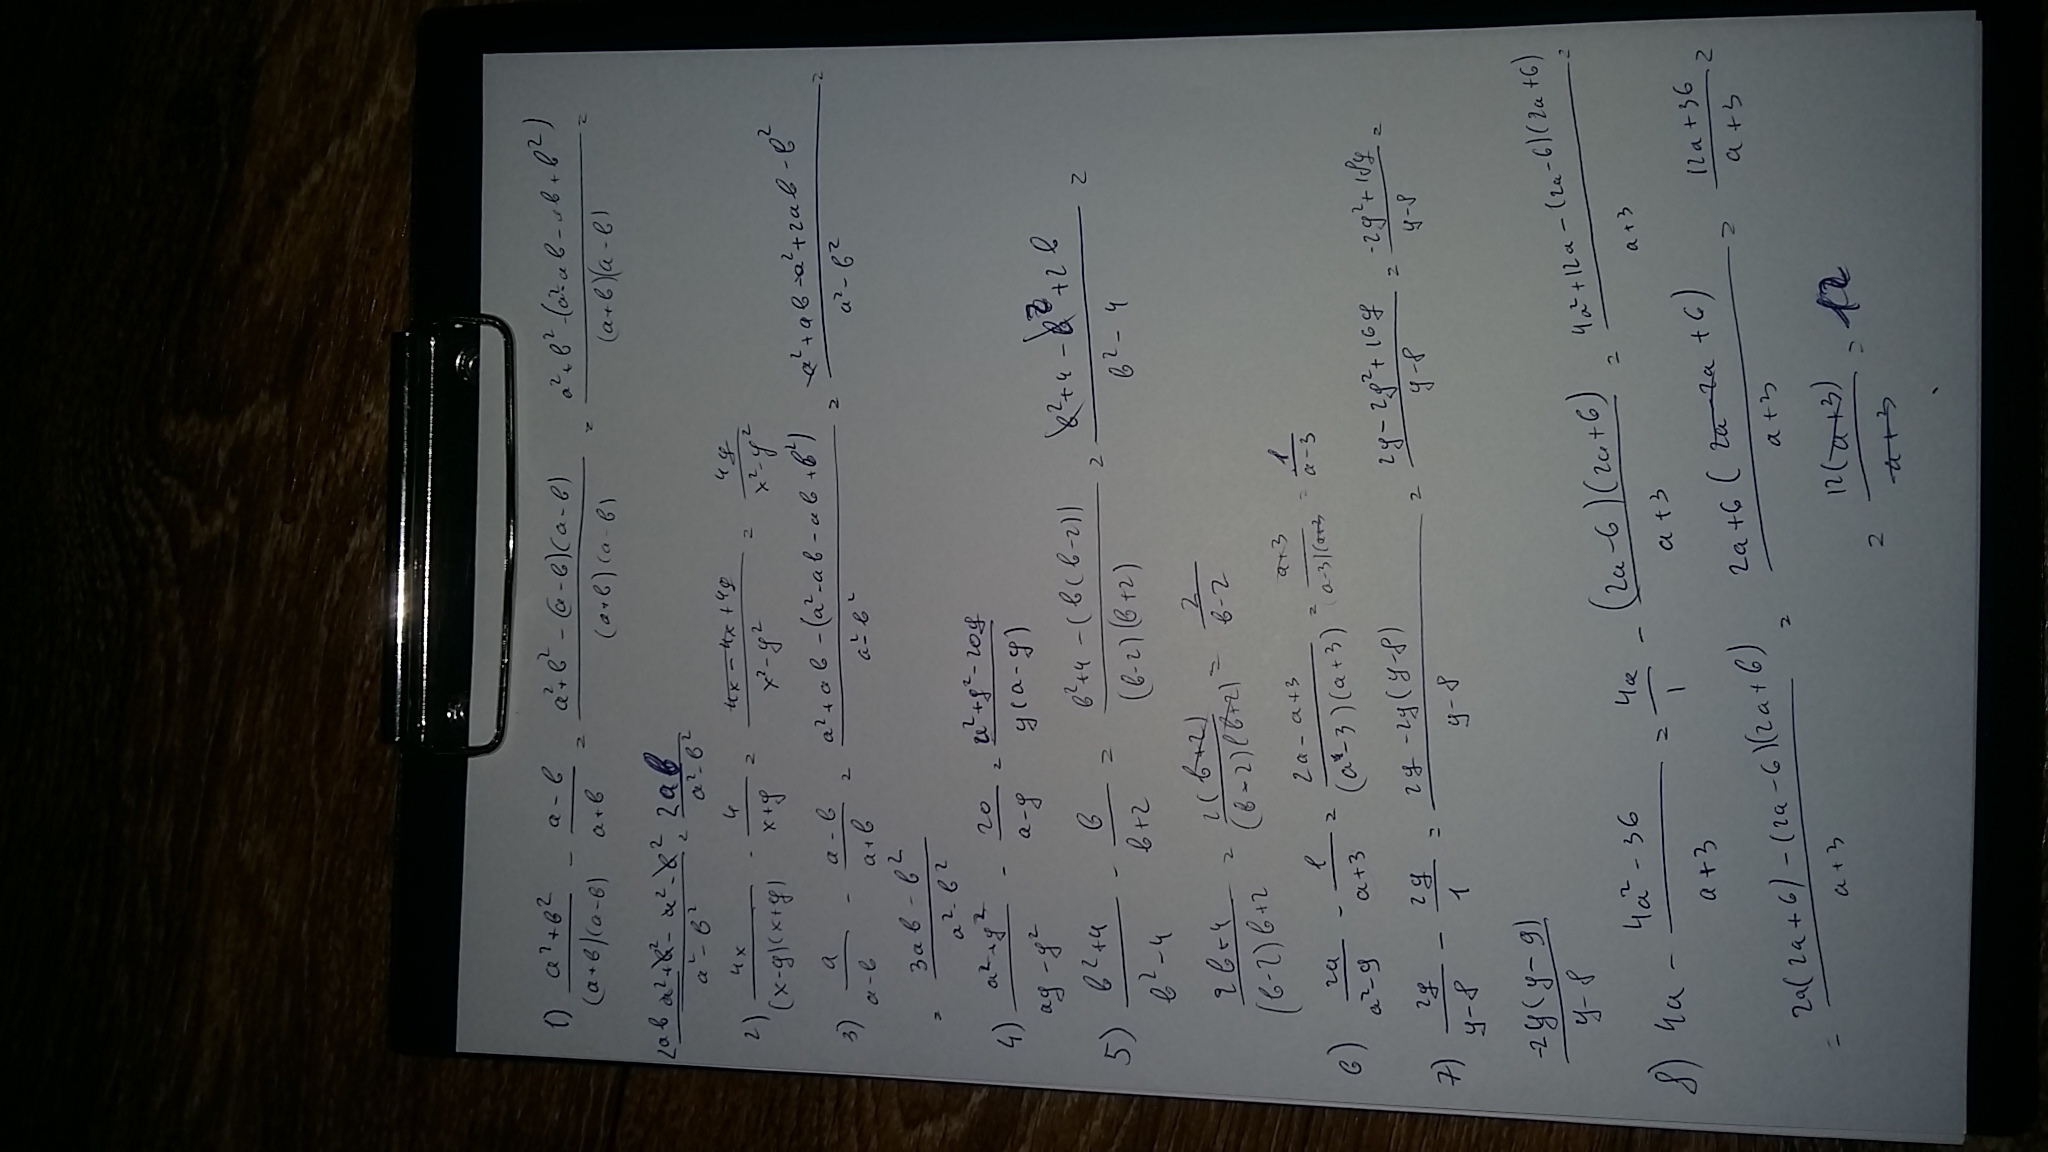 1) (a²+b²)/((a+b)(a-b)) - (a-b)/(a+b) = (a²+b²-(a-b)(a-b))/((a+b)(a-b)) = (a²+b²-(a²-ab-ab+b²))/((a+b)(a-b)) =
(2ab a²+b²-a²-b²)/(a²-b²) = 2ab/(a²-b²)
2) 4x/((x-y)(x+y)) - 4/(x+y) = (4x-4x+4y)/(x²-y²) = 4y/(x²-y²)
3) a/(a-b) - (a-b)/(a+b) = (a²+ab-(a²-ab-ab+b²))/(a²-b²) = (a²+ab-a²+2ab-b²)/(a²-b²) =
= (3ab-b²)/(a²-b²)
4) (a²+y²)/(ay-y²) - 20/(a-y) = (a²+y²-20y)/(y(a-y))
5) (b²+4)/(b²-4) - b/(b+2) = (b²+4-(b(b-2)))/((b-2)(b+2)) = (b²+4-b²+2b)/(b²-4) =
(2b+4)/((b-2)b+2) = 2(b+2)/((b-2)(b+2)) = 2/(b-2)
6) 2a/(a²-9) - 1/(a+3) = (2a-a+3)/((a-3)(a+3)) = (a+3)/((a-3)(a+3)) = 1/(a-3)
7) 2y/(y-8) - 2y/1 = (2y-2y(y-8))/(y-8) = (2y-2y²+16y)/(y-8) = (-2y²+18y)/(y-8) =
-2y(y-9)/(y-8)
8) 4a - (4a²-36)/(a+3) = 4a/1 - (2a-6)(2a+6)/(a+3) = (4a²+12a-(2a-6)(2a+6))/(a+3) =
= (2a(2a+6)-(2a-6)(2a+6))/(a+3) = 2a+6(2a-2a+6)/(a+3) = (12a+36)/(a+3) =
= 12(a+3)/(a+3) = 12